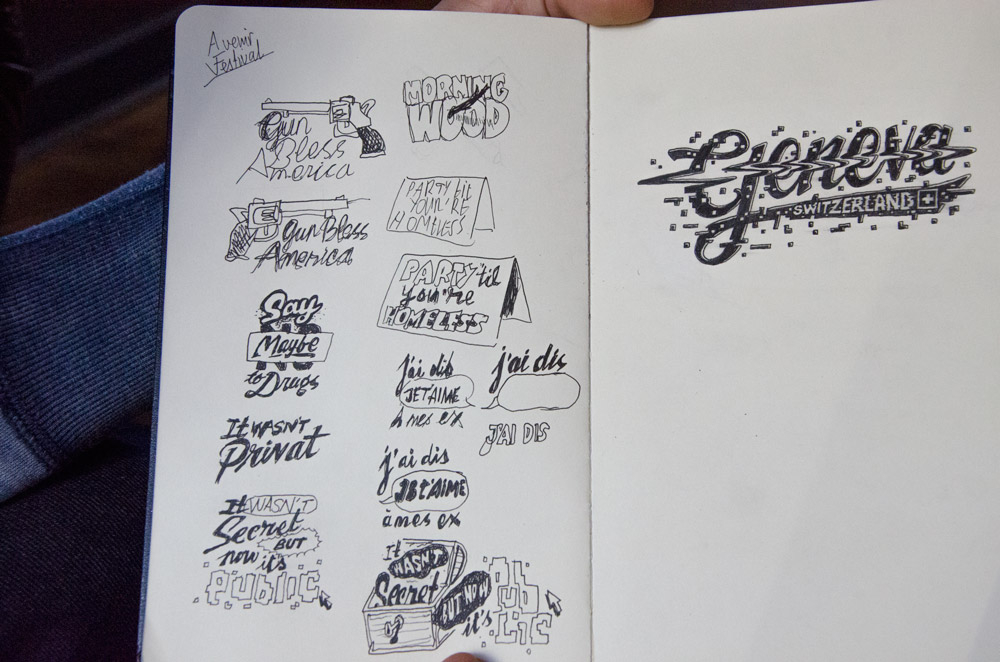 Avenir
Festival
Gun
Bless
America
Gun Bless
America
Say
NO
Maybe
to Drugs
It WASN'T
Privat
It WASN'T
Secret
BUT
now it's
PUBLIC
MORNING
WOOD
PARTY til
YOU'RE
HOMELESS
PARTY 'til
you're
HOMELESS
j'ai dis
JE T'AIME
à mes ex
j'ai dis
J'AI DIS
j'ai dis
JE T'AIME
à mes ex
It
WASN'T
Secret
BUT NOW
it's
PUB
LIC
Geneva
SWITZERLAND